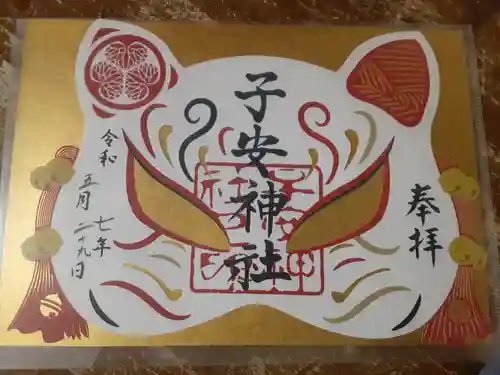 奉拝
子安神社
令和
七年
五月
二十九日